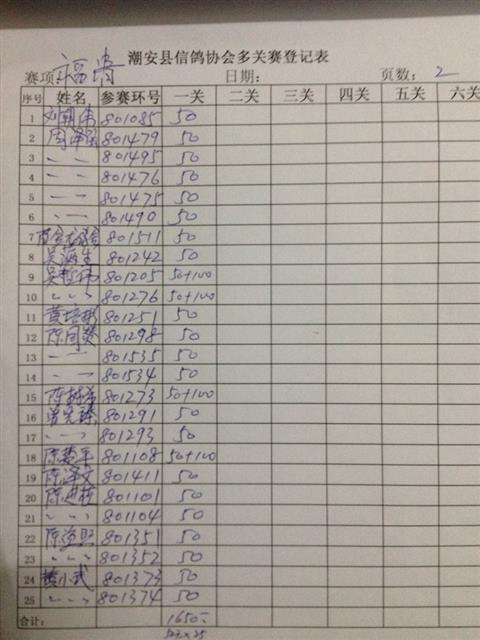 潮安县信鸽协会多关赛登记表
赛项: 福贵 日期: 页数: 2
序号 姓名 参赛环号 一关 二关 三关 四关 五关 六关
1 801085 50
2 周泽强 801479 50
3 〃 〃 801495 50
4 〃 〃 801476 50
5 〃 〃 801475 50
6 〃 〃 801490 50
7 801511 50
8 吴海生 801242 50
9 吴哲伟 801205 50+100
10 〃 〃 801276 50+100
11 黄培彬 801251 50
12 801298 50
13 〃 〃 801535 50
14 〃 〃 801534 50
15 801273 50+100
16 801291 50
17 〃 〃 801293 50
18 801108 50+100
19 陈泽文 801411 50
20 801101 50
21 〃 〃 801104 50
22 801351 50
23 〃 〃 801352 50
24 黄小武 801373 50
25 〃 〃 801374 50
合计: 1650